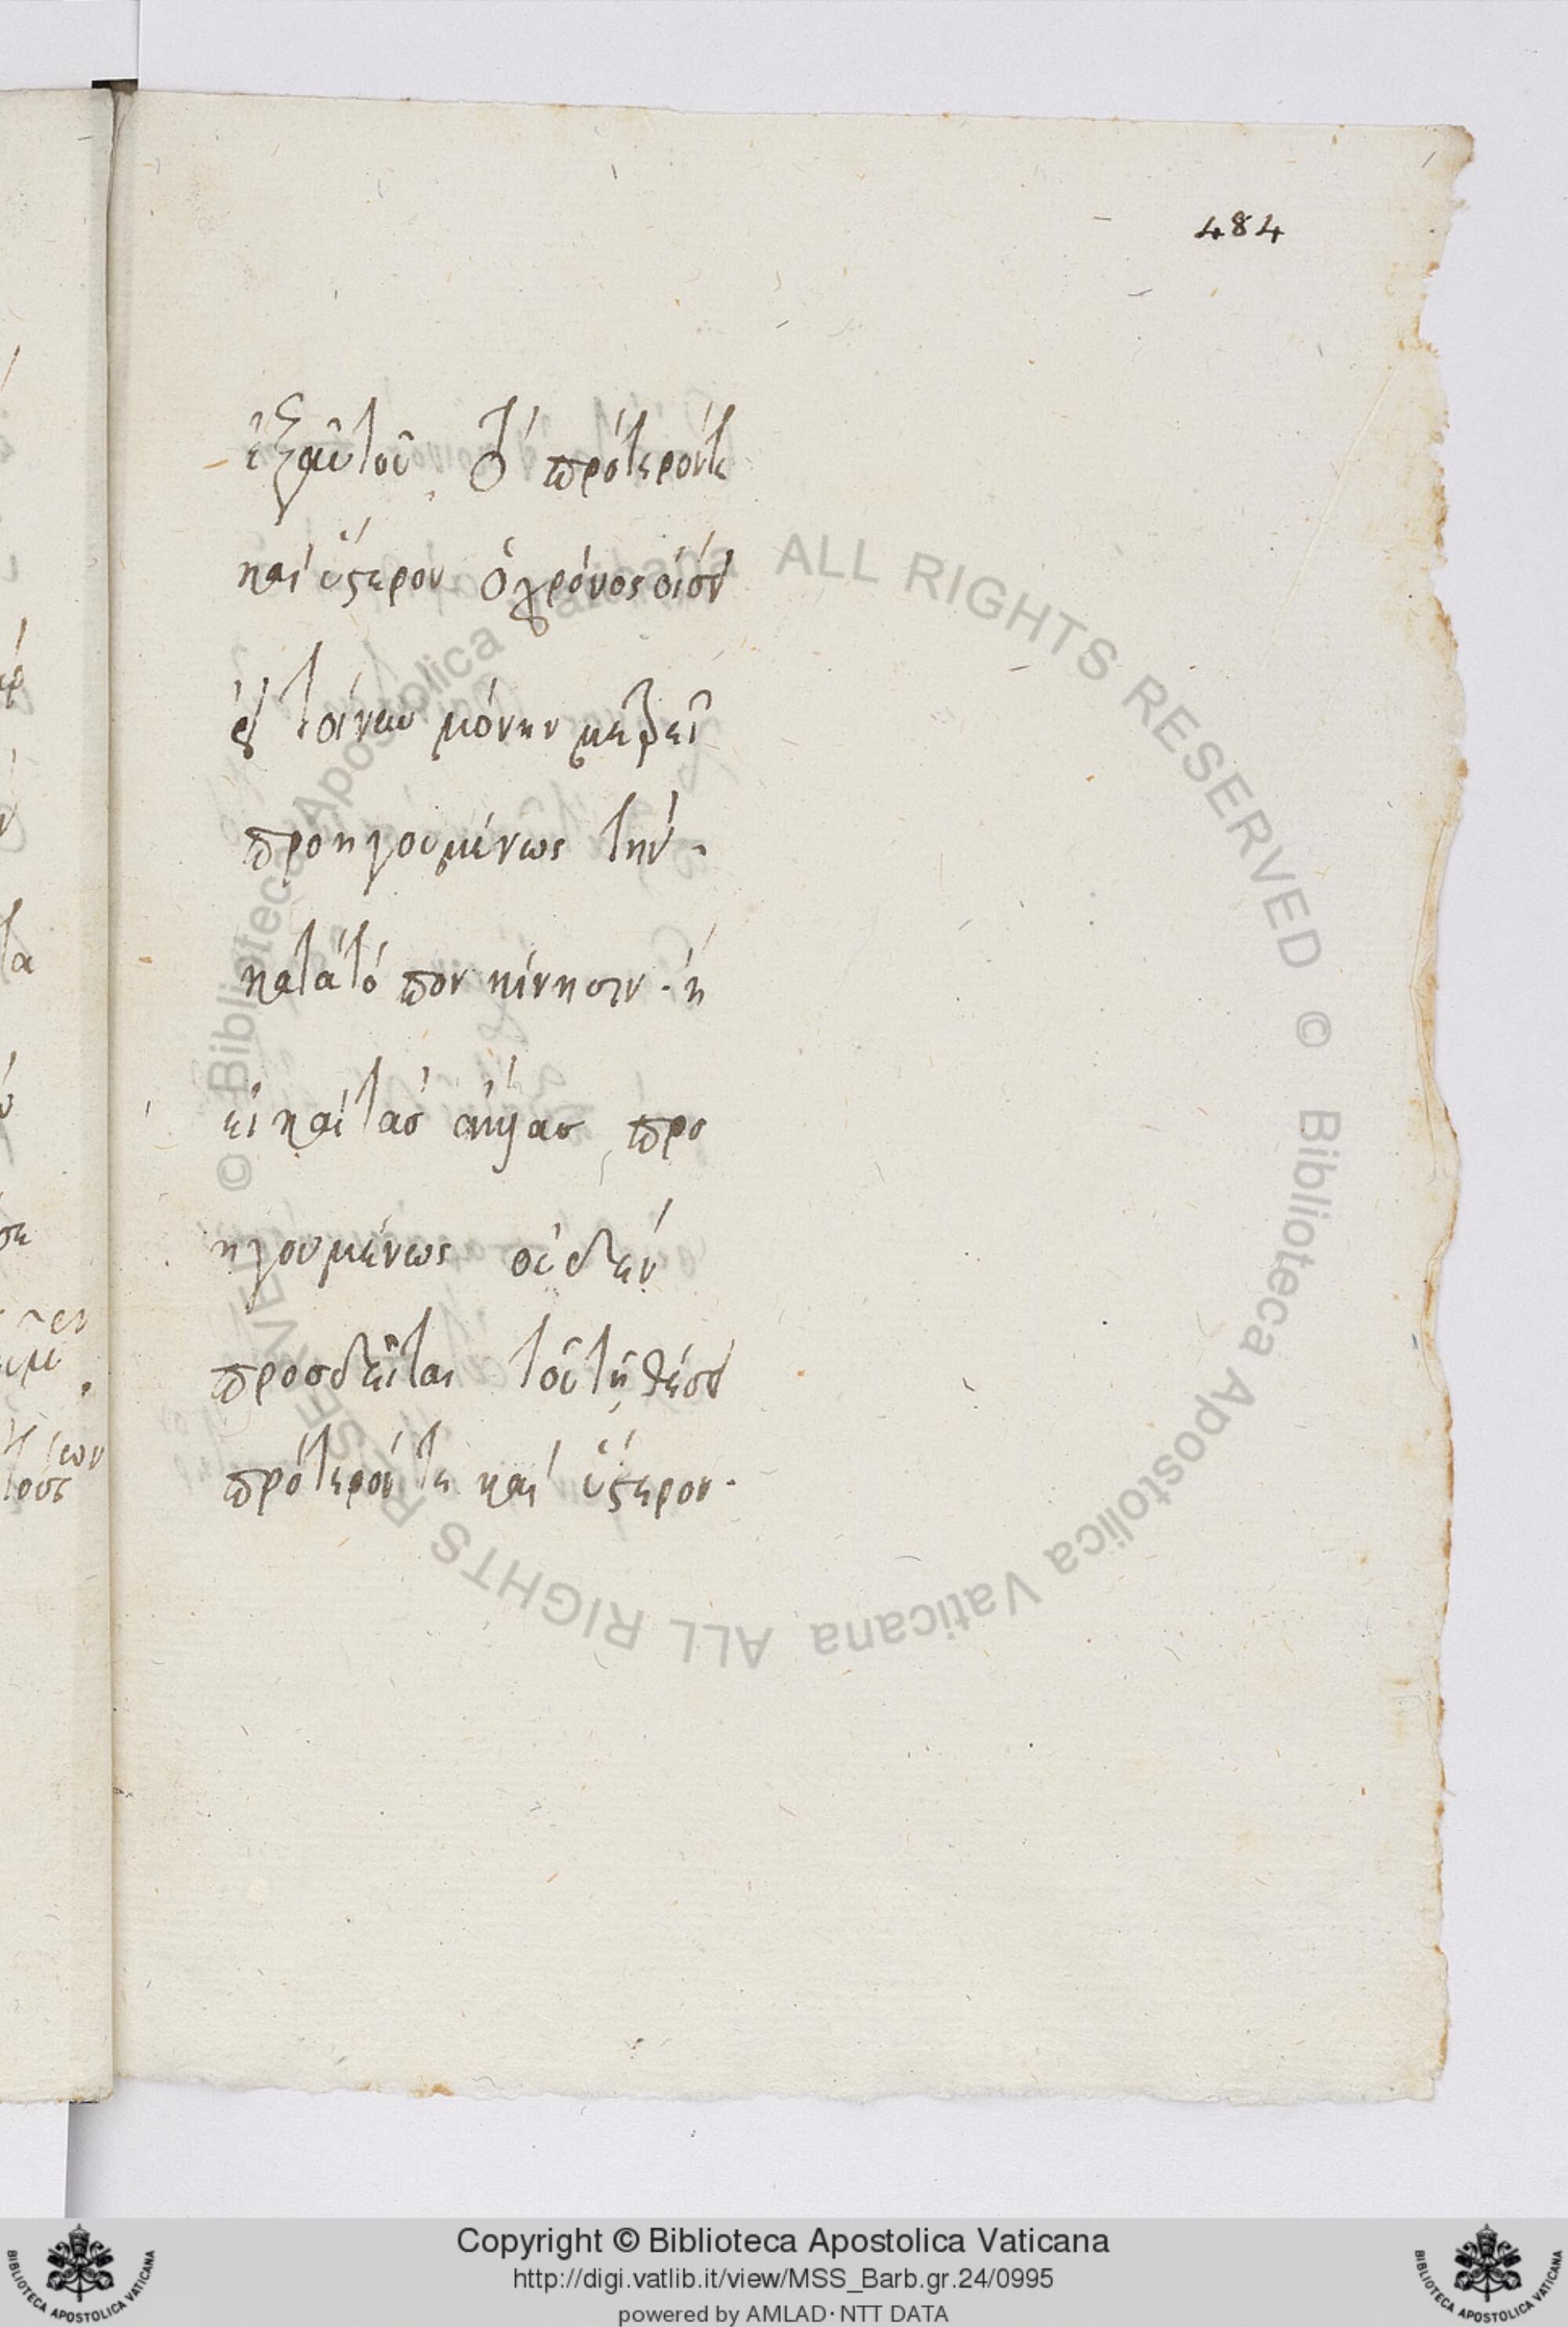 484
ἐξ αὐτοῦ. τὸ πρότερόν τε
καὶ ὕστερον ὁ χρόνος οἷον
μόνην μετρεῖ
προηγουμένως τὴν·
κατὰ τόπον κίνησιν· ἢ
εἰ καὶ τὰσ πρὸ
ηγουμένως οὐδὲν
προσδεῖται τοῦ τῆ θέσει
πρότερόν τε καὶ ὕστερον·
© Biblioteca Apostolica Vaticana ALL RIGHTS RESERVED © Biblioteca Apostolica Vaticana ALL RIGHTS RESERVED
Copyright © Biblioteca Apostolica Vaticana
http://digi.vatlib.it/view/MSS_Barb.gr.24/0995
powered by AMLAD·NTT DATA
BIBLIOTECA APOSTOLICA VATICANA
BIBLIOTECA APOSTOLICA VATICANA